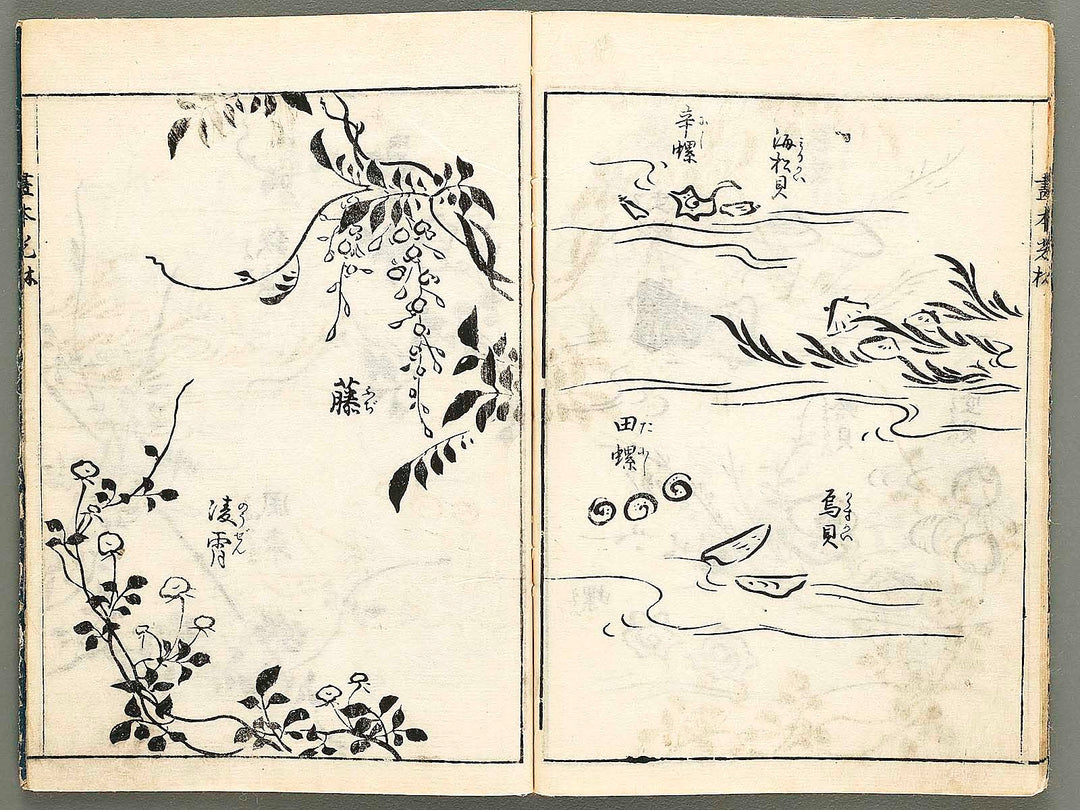 畫本
海松貝
みるかい
辛螺
にし
田螺
たにし
烏貝
からすかい
藤
ふぢ
凌霄
のうぜん
畫本